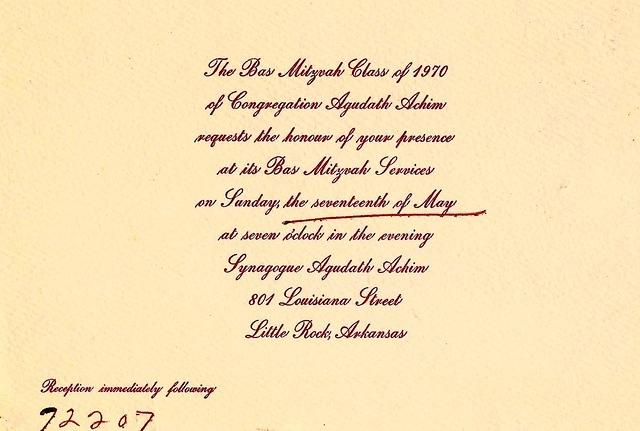 The Bas Mitzvah Class of 1970
of Congregation Agudath Achim
requests the honour of your presence
at its Bas Mitzvah Services
on Sunday, the seventeenth of May
at seven o'clock in the evening
Synagogue Agudath Achim
801 Louisiana Street
Little Rock, Arkansas
Reception immediately following
72207